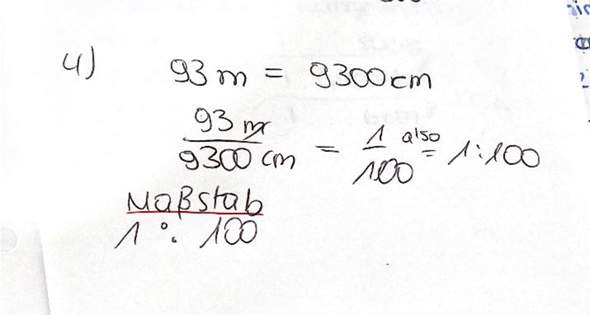 4) 93 m = 9300 cm
93 m / 9300 cm = 1/100 also = 1:100
Maßstab
1 : 100